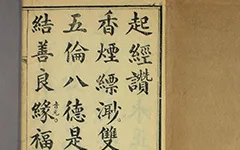 起經讚
香煙縹渺雙
五倫八德是
結善良緣福